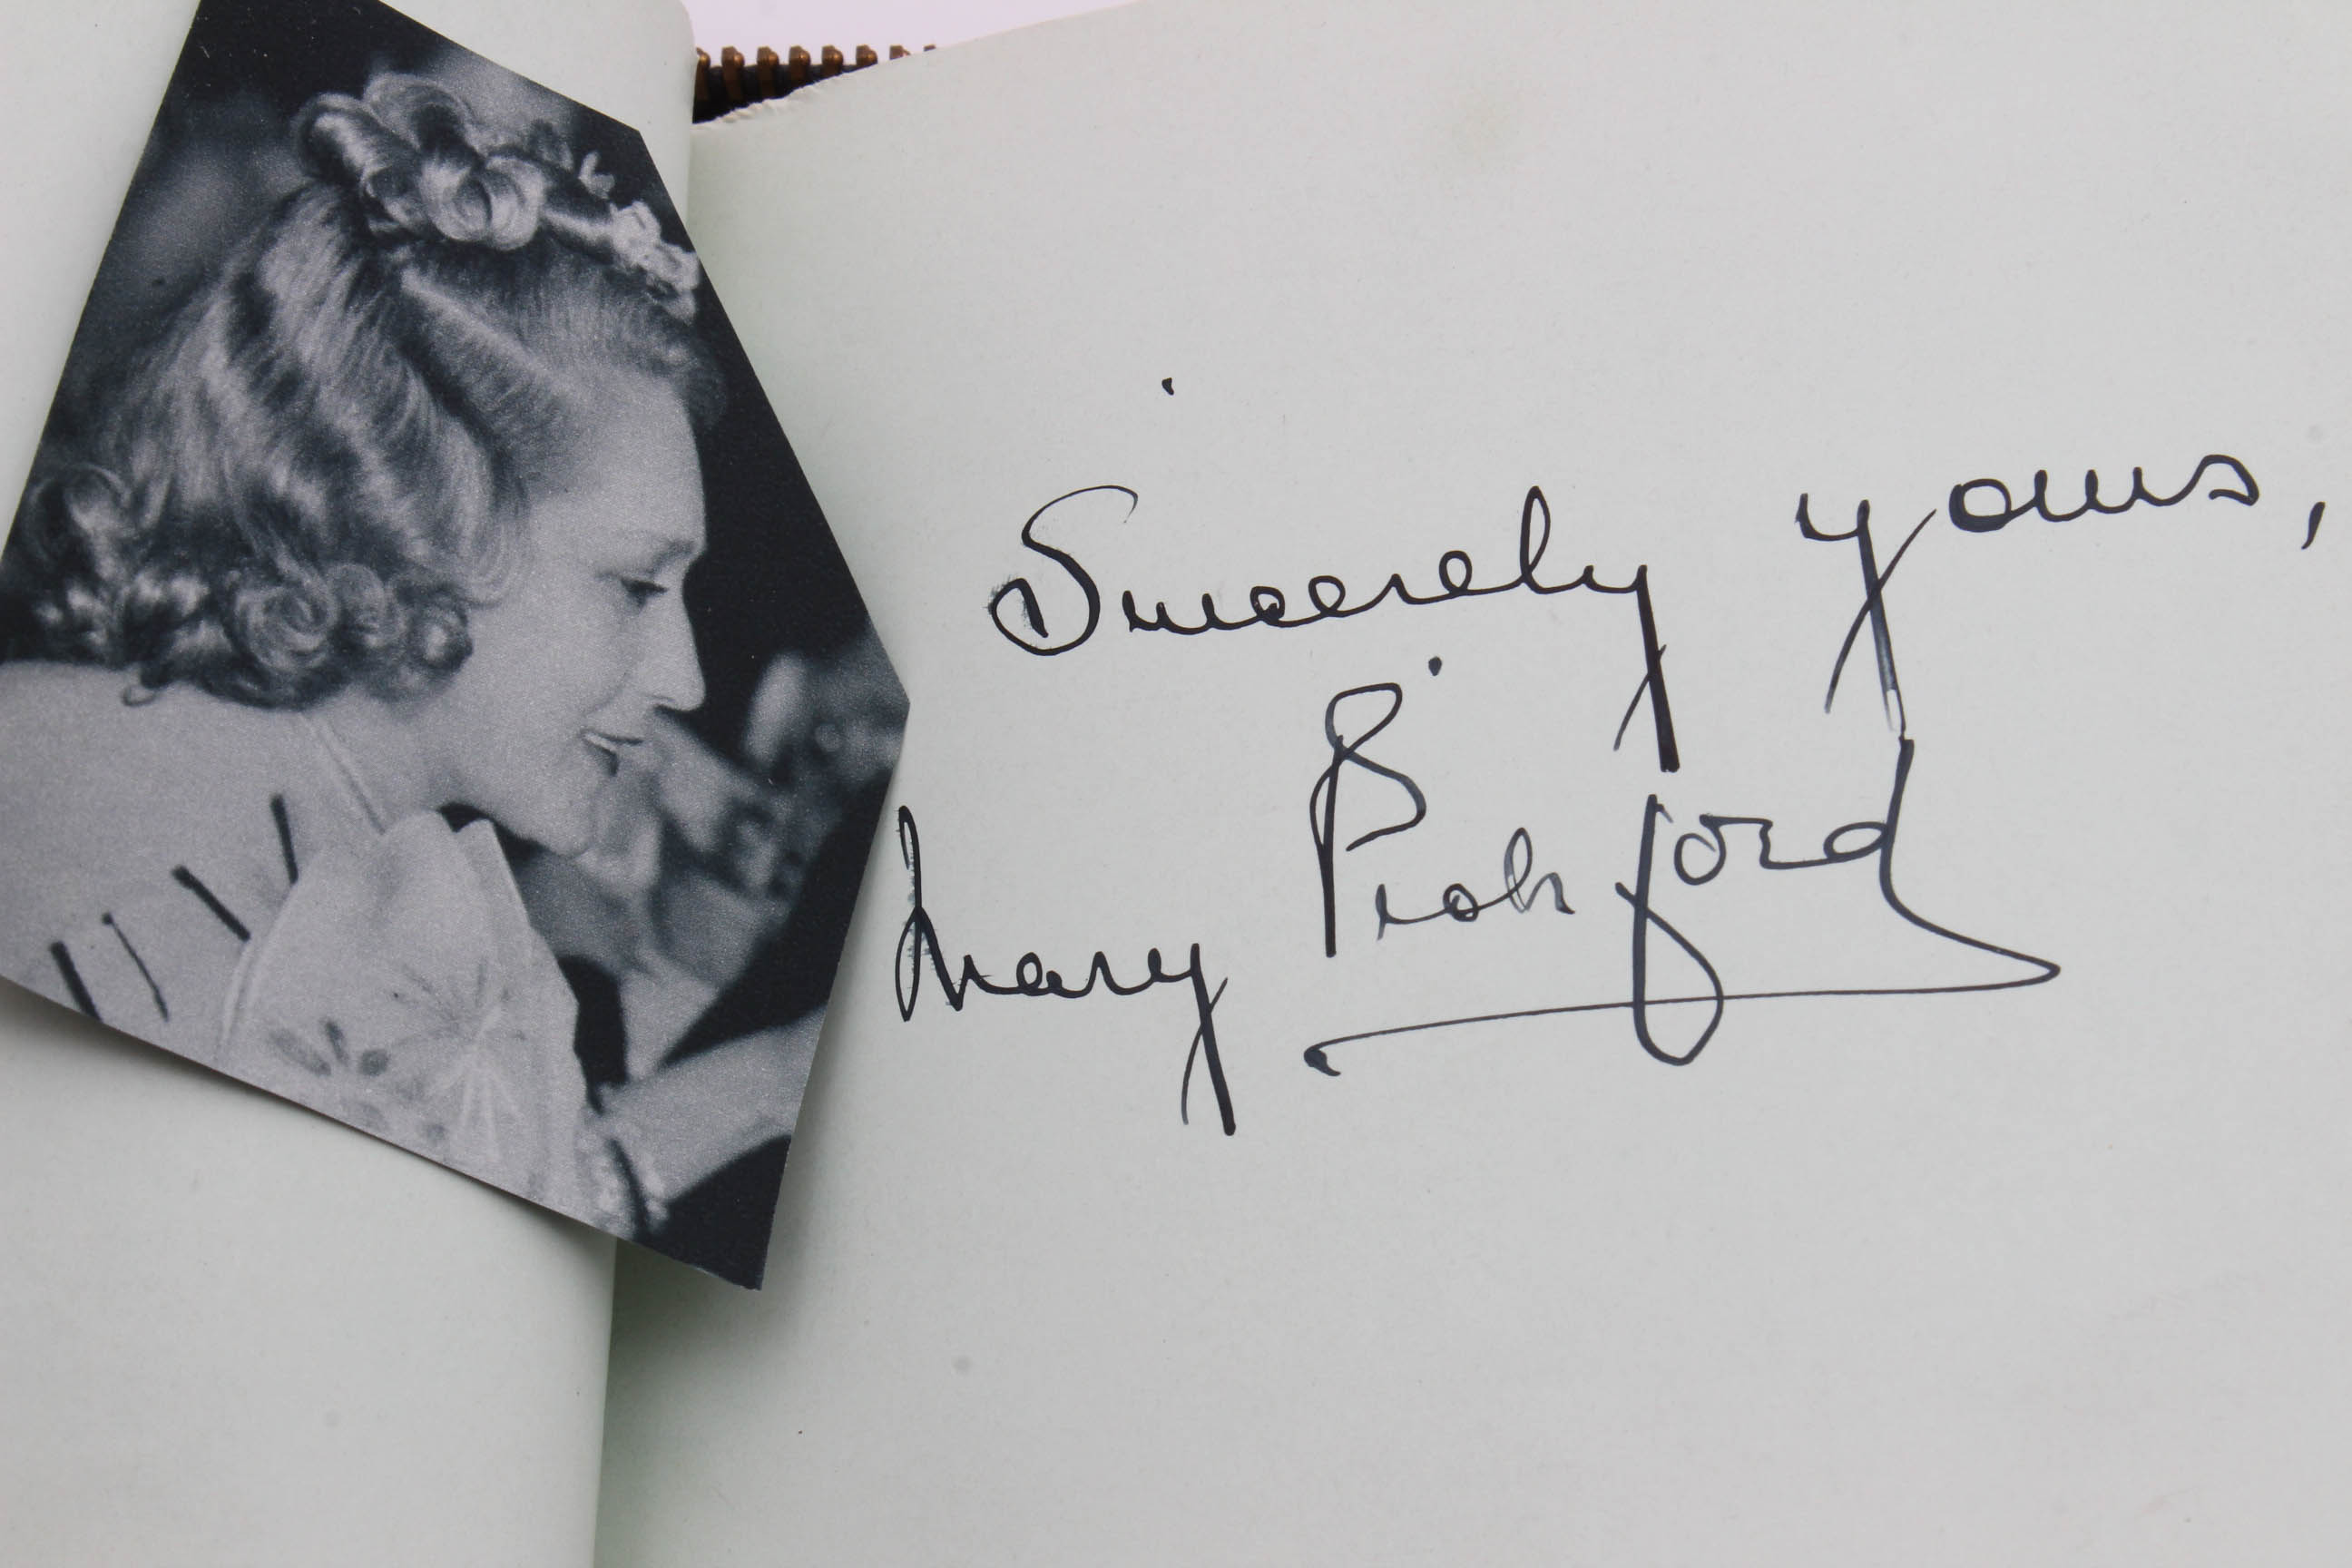 Sincerely yours,
Mary Pickford